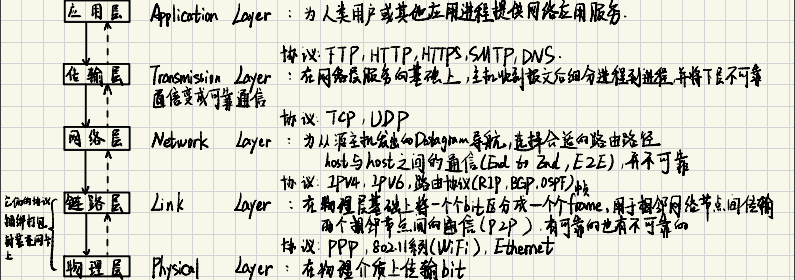 应用层 Application Layer : 为人类用户或其他应用进程提供网络应用服务.
协议: FTP, HTTP, HTTPS, SMTP, DNS.
传输层 Transmission Layer : 在网络层服务的基础上, 主机收到报文后细分进程到进程, 并将下层不可靠
通信变成可靠通信
协议: TCP, UDP
网络层 Network Layer : 为从源主机发出的Datagram导航, 选择合适的路由路径
host与host之间的通信(End to End, E2E), 并不可靠
协议: IPV4, IPV6, 路由协议(RIP, BGP, OSPF)
帧
链路层 Link Layer : 在物理层基础上将一个个bit区分成一个个frame, 用于相邻网络节点间传输
两个相邻节点间的通信(P2P). 有可靠的也有不可靠的
协议: PPP, 802.11系列(WiFi), Ethernet
物理层 Physical Layer : 在物理介质上传输bit
它们的协议
捆绑打包
封装在网卡
上